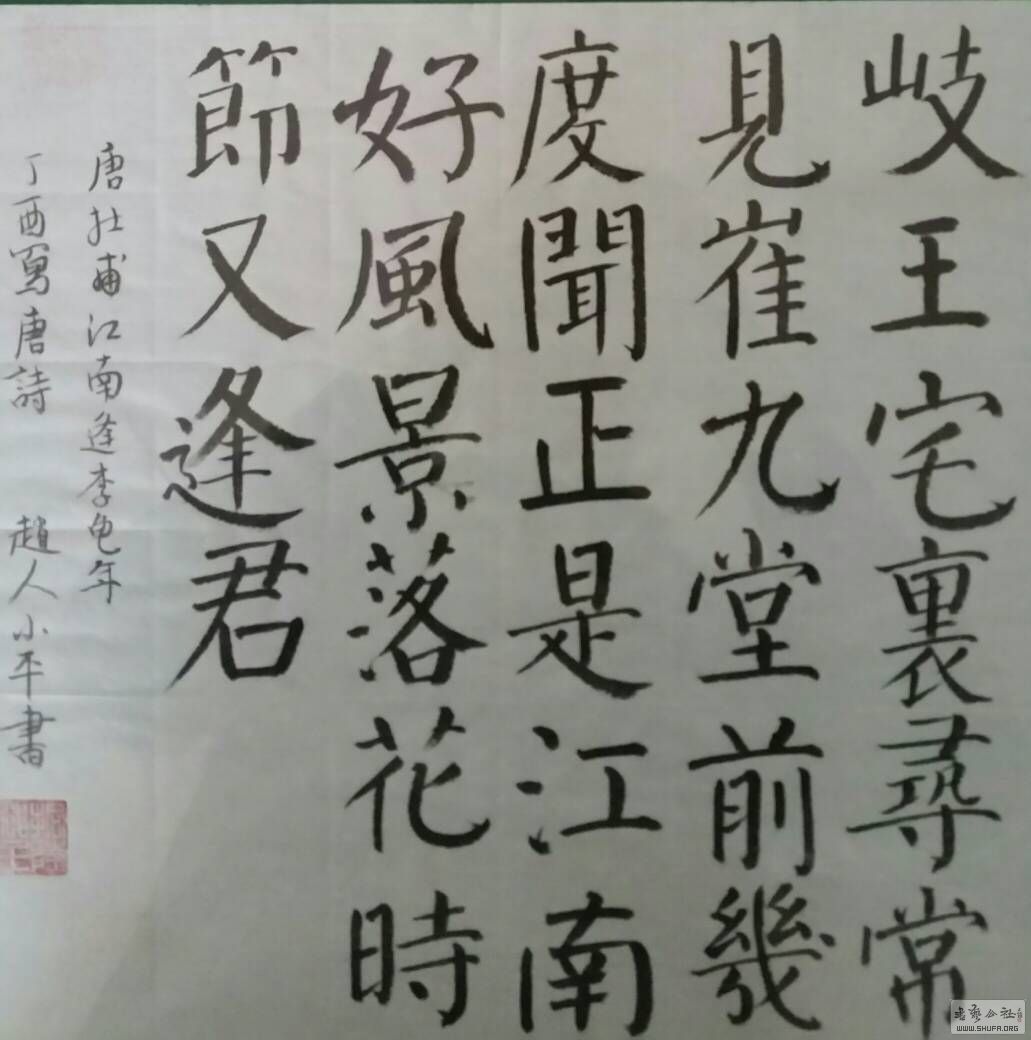 岐王宅裏尋常
見崔九堂前幾
度聞正是江南
好風景落花時
節又逢君
唐杜甫江南逢李龟年
丁酉寫唐詩 趙人小平書
WWW.SHUFA.ORG